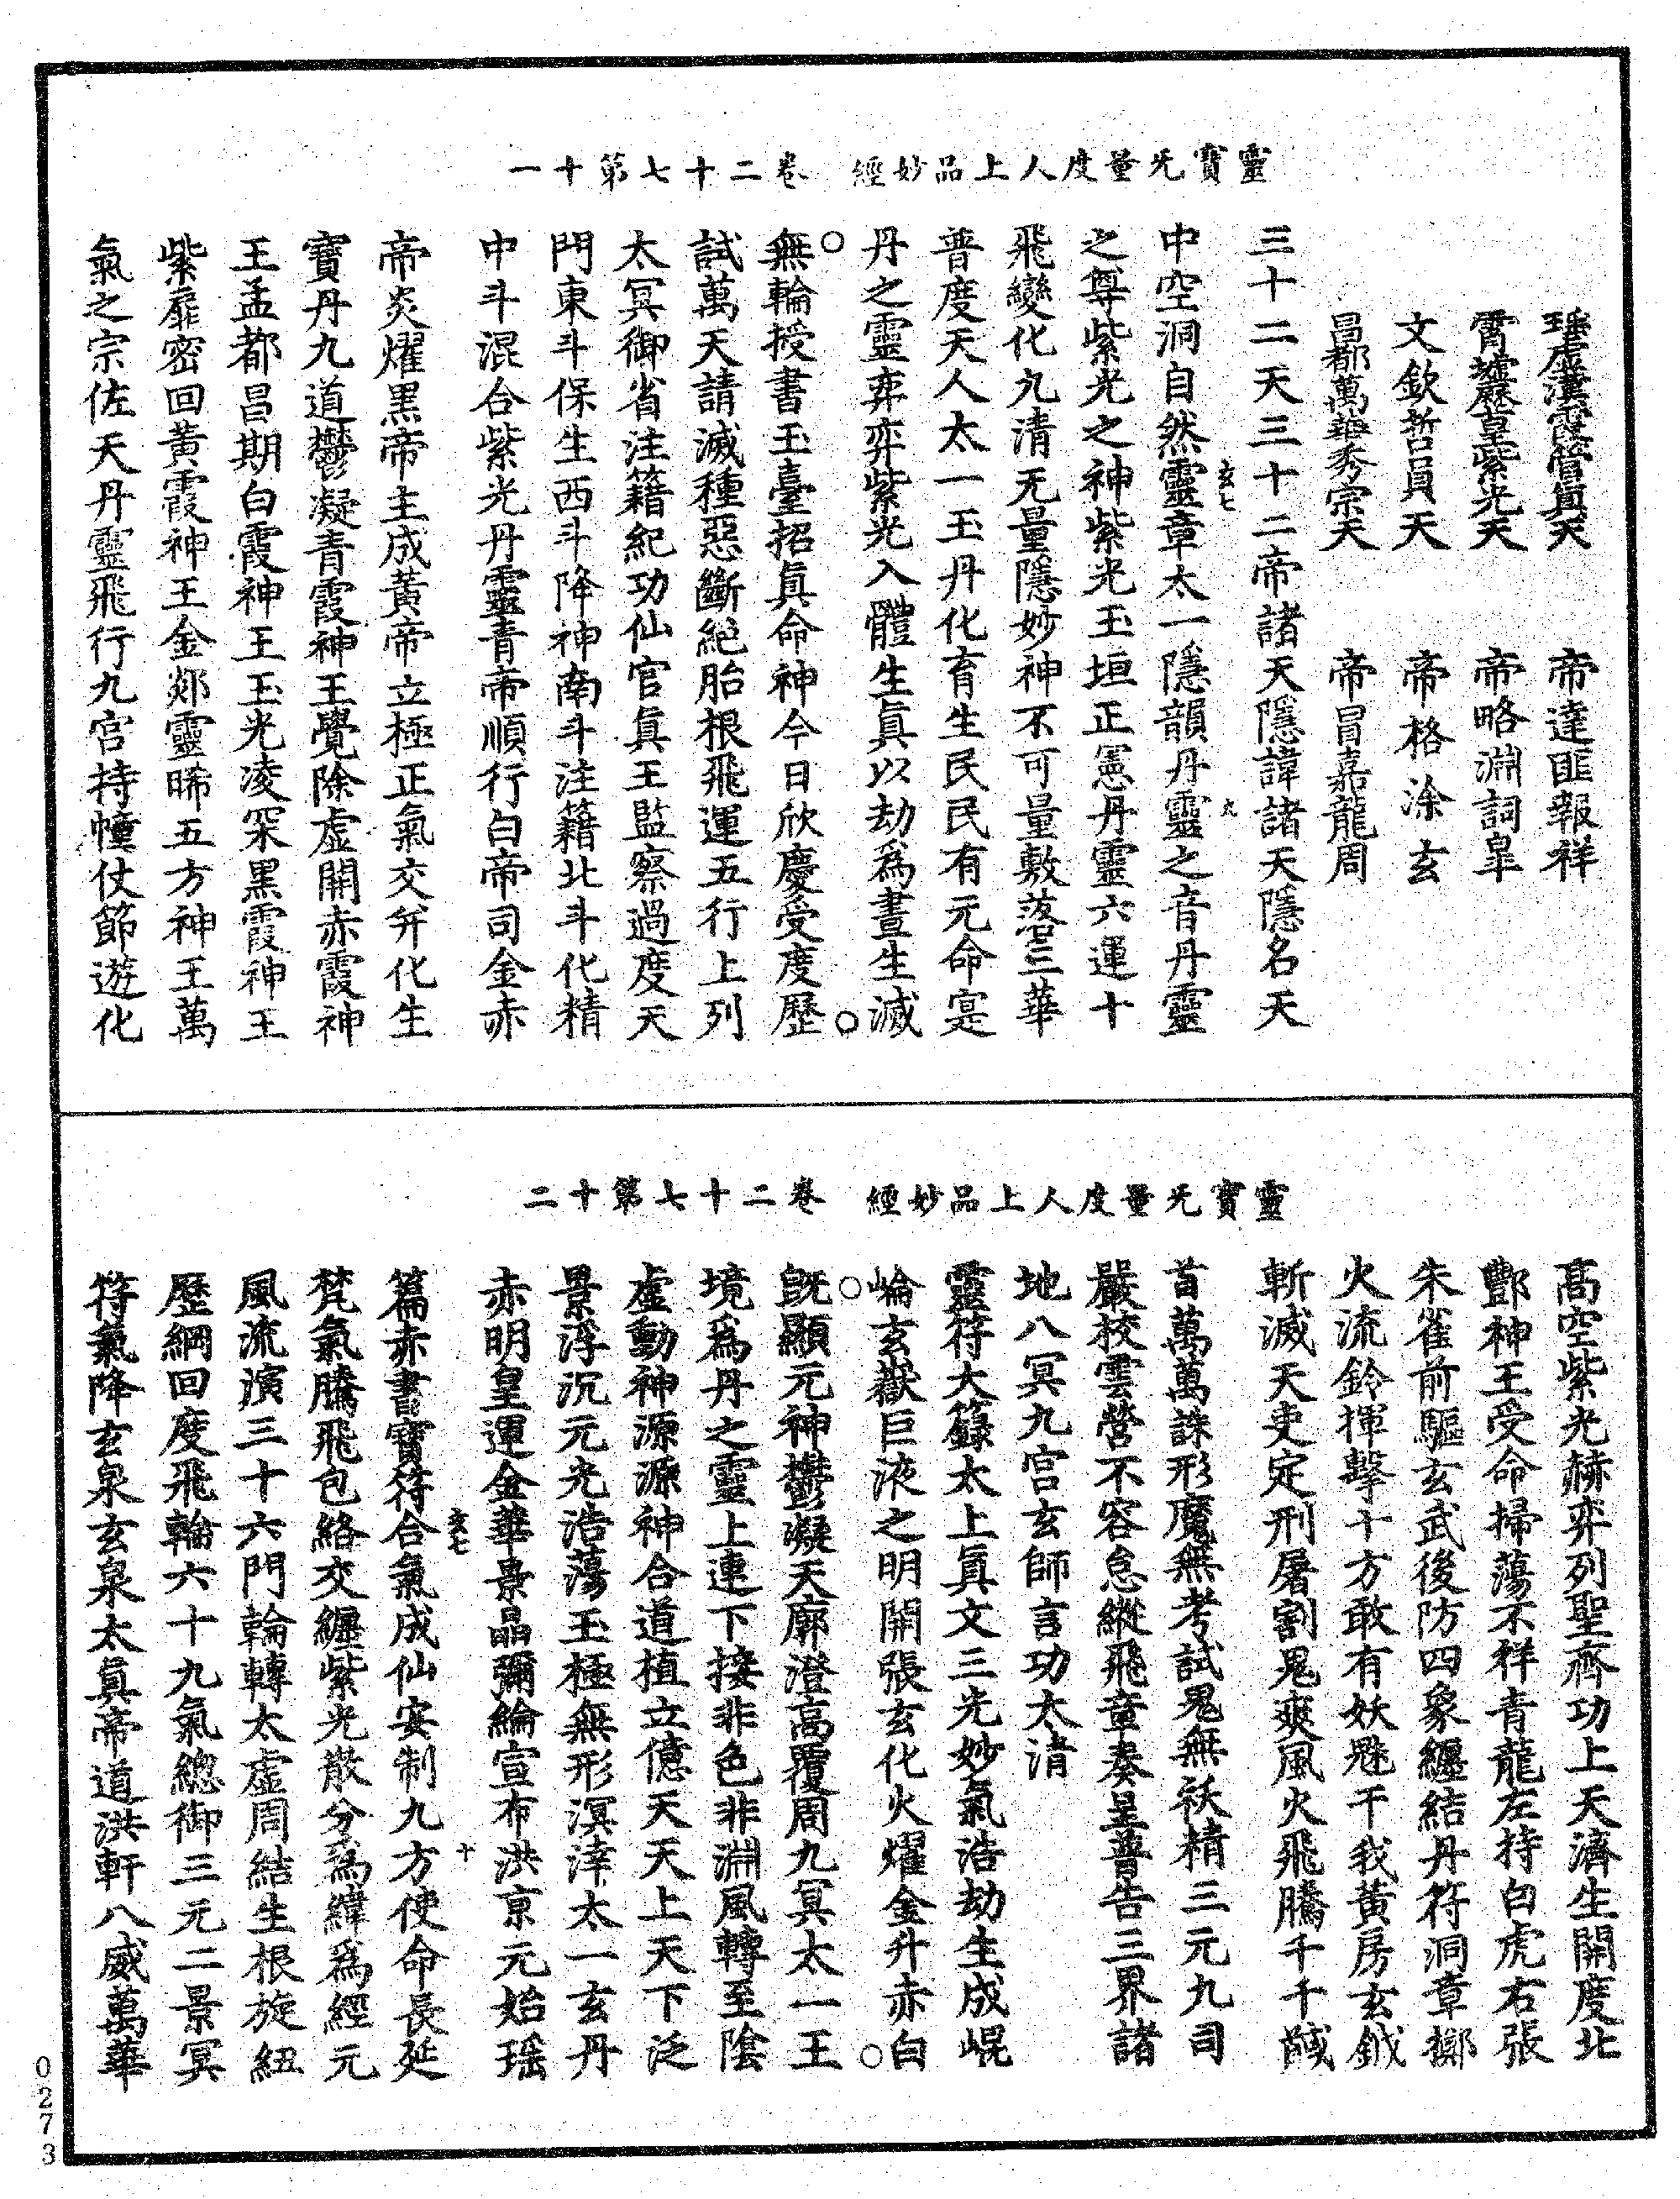 靈寶旡量度人上品妙經　卷二十七第十一
瑤虛漢霞管眞天　帝達匪報祥
霄墟麝皇紫光天　帝略淵詞皐
文欽哲員天　帝格涂玄
昌都萬華秀宗天　帝冒嘉龍周
三十二天三十二帝諸天隱諱諸天隱名天
中空洞自然靈章太一隱韻丹靈之音丹靈
玄七
九
之尊紫光之神紫光玉垣正憲丹靈六運十
飛變化九清无量隱妙神不可量敷落三華
普度天人太一玉丹化育生民民有元命寔
丹之靈弈弈紫光入體生眞以劫爲晝生滅
○無輪授書玉臺招眞命神今日欣慶受度歷○
試萬天請滅種惡斷絕胎根飛運五行上列
太冥御省注籍紀功仙官眞王監察過度天
門東斗保生西斗降神南斗注籍北斗化精
中斗混合紫光丹靈青帝順行白帝司金赤
帝炎燿黑帝主成黃帝立極正氣交并化生
寶丹九道鬱凝青霞神王覺除虛開赤霞神
王孟都昌期白霞神王玉光凌罙黑霞神王
紫扉密回黃霞神王金郯靈晞五方神王萬
氣之宗佐天丹靈飛行九宮持幢仗節遊化
靈寶旡量度人上品妙經　卷二十七第十二
高空紫光赫弈列聖齊功上天濟生開度北
酆神王受命掃蕩不祥青龍左持白虎右張
朱雀前驅玄武後防四象纏結丹符洞章擲
火流鈴揮擊十方敢有妖魅干我黃房玄鉞
斬滅天吏定刑屠割鬼爽風火飛騰千千馘
首萬萬誅形魔無考試鬼無祅精三元九司
嚴校雲營不容怠縱飛章奏呈普告三界諸
地八冥九宮玄師言功太清
靈符大籙太上眞文三光妙氣浩劫生成崐
崘玄嶽巨液之明開張玄化火燿金升赤白
○旣顯元神鬱凝天廓澄高覆周九冥太一王○
境爲丹之靈上連下接非色非淵風轉至陰
虛動神源源神合道植立億天天上天下泛
景浮沉元光浩蕩玉極無形溟涬太一玄丹
赤明皇運金華景晶彌綸宣布洪京元始瑤
篇赤書寶符合氣成仙安制九方使命長延
玄七
十
梵氣騰飛包絡交纏紫光散分爲緯爲經元
風流演三十六門輪轉太虛周結生根旋紐
歷綱回度飛輪六十九氣總御三元二景冥
符氣降玄泉玄泉太眞帝道洪軒八威萬華
0273